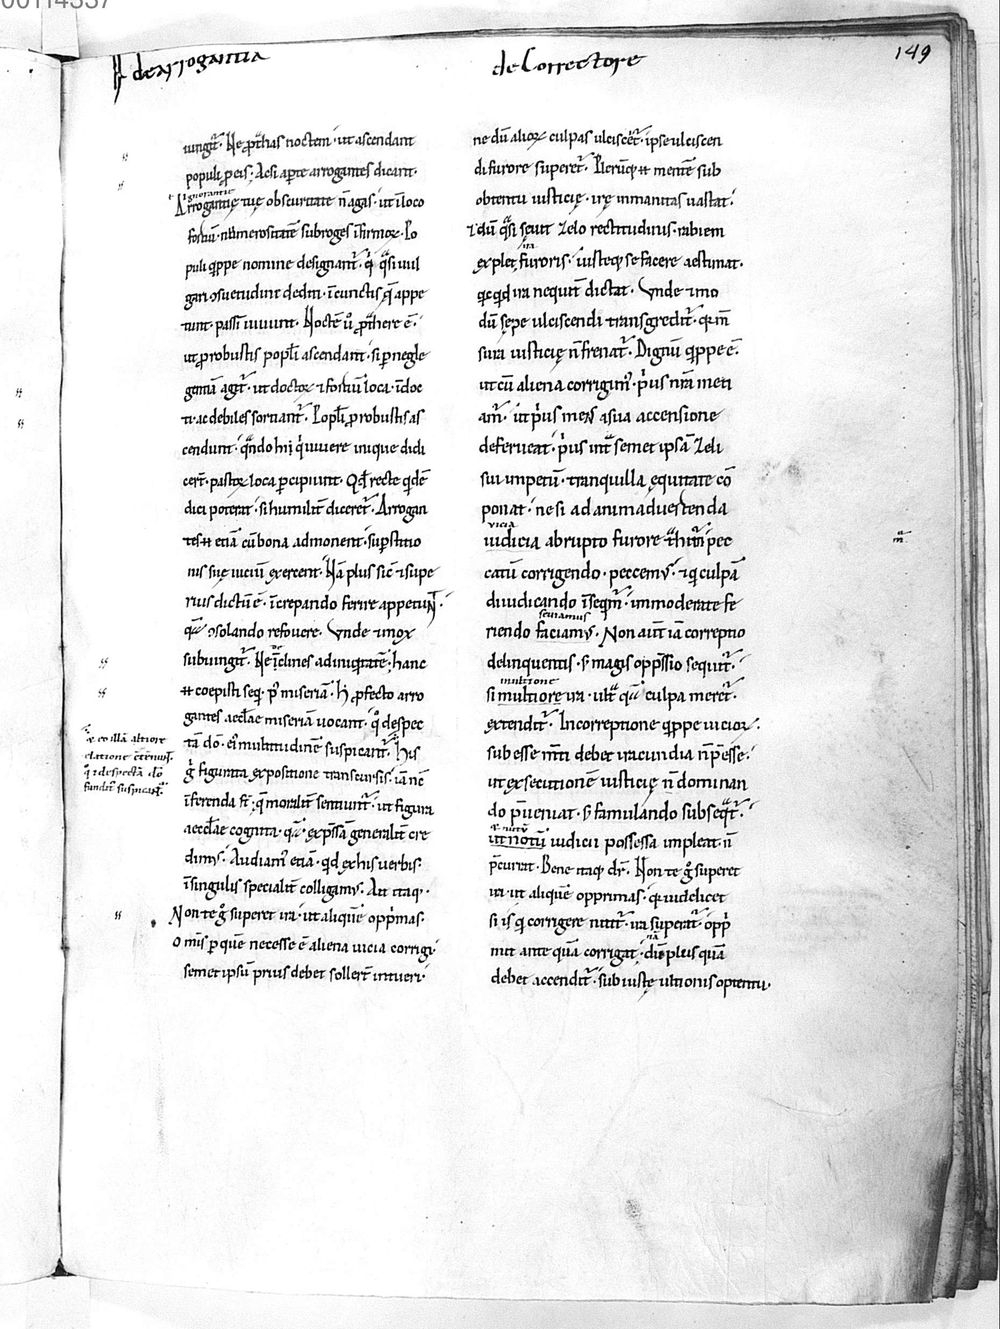 00114337
de arrogantia
de Correctore
149
iungit̄. Ne ꝑt̄has noctem. ut ascendant
populi ꝓ eis. Ac si aꝑte arrogantes dicant.
ł ignorantię
Arrogantię tuę obscuritate n̄ agas. ut ī loco
fortiū numerositatē subroges īfirmoꝝ. Po
puli q̄ppe nomine designant̄. q̄ q̄si uul
gari ↄsuetudini dediti. ī cunctis q̄ appe
tunt. passī uiuunt. Noctē ū ꝓt̄here ē.
ut ꝓ robustis popłi ascendant. si ꝑ negle
gentiā agit̄. ut doctoꝝ ⁊ fortiū loca. īdoc
ti. ac debiles sortiant̄. Popłi ꝓ robustis as
cendunt. q̄ndo hii q̄ uiuere inique didi
cer̄t. pastoꝝ loca ꝑcipiunt. Qd̄ recte q̄dē
dici poterat. si humilit̄ diceret̄. Arrogan
tes ⁊ etiā cū bona admonent. suꝑstitio
nis suę uiciū exercent. Nā plus sic̄ ⁊ supe
rius dictū ē. īcrepando ferire appetunt̄.
quā ↄsolando refouere. Unde ⁊ mox
subiungit̄. Ne īclines ad iniq̄tatē. hanc
⁊ coepisti seq̄. ꝑ miseriā. h̄ ꝓfecto arro
gantes aecc̄lae miseriā uocant. q̄ despec
tā dō. eī multitudinē suspicant̄. his
ḡ figurata expositione transcursis. iā nē
īferenda st̄. q̄ moralit̄ sentiunt̄. ut figura
aecc̄lae cognita. quā exp̄ssā generalit̄ cre
dim̄s. Audiam̄ etiā. qd̄ ex his uerbis.
ī singulis specialit̄ colligam̄s. Ait itaq̄.
Non te ḡ superet ira. ut aliquē opp̄mas.
Om̄is ꝑ quē necesse ē aliena uicia corrigi.
semet ipsū prius debet sollert̄ intueri.
ex eo illā altiore
elatione
q̄ ⁊ despectā dō
suspicant̄.
ne dū alioꝝ culpas ulciscit̄. ipse ulciscen
di furore superet̄. Plerūq̄ ⁊ mentē sub
obtentu iusticię. irę immanitas uastat.
⁊ dū q̄si seuit zelo rectitudinis. rabiem
irę
explet furoris. iusteq̄ se facere aestimat.
quicq̄d ira nequit̄ dictat. Unde ⁊ mo
dū sepe ulciscendi transgredit̄. quā m̄
sura iusticię n̄ frenat̄. Dignū q̄ppe ē.
ut cū aliena corrigim̄. p̄us nr̄a meti
am̄. ut p̄us mens a sua accensione
deferueat. p̄us int̄ semet ipsā zeli
sui impetū. tranquilla equitate cō
ponat. ne si ad animaduertenda
vicia
iudicia abrupto furore t̄him̄ pec
catū corrigendo. peccem̄. ⁊ q̄ culpā
diiudicando īseq̄m̄. immoderate fe
seuiamus
riendo faciam̄. Non aut̄ iā correptio
delinquentis. s̄ magis opp̄ssio sequit̄.
in ultione
si in ultiore ira. ult̄ quā culpa meret̄.
extendit̄. In correptione q̄ppe uicioꝝ.
subesse m̄ti debet iracundia n̄ p̄esse.
ut exsecutionē iusticię n̄ dominan
do p̄ueniat. s̄ famulando subseq̄t̄.
ł nutū
ut notū iudicii possessa impleat. n̄
p̄currat. Bene itaq̄ dr̄. Non te ḡ superet
ira. ut aliquē opprimas. quia uidelicet
si is q̄ corrigere nitit̄. ira superat̄. opp̄
mit ante quā corrigat. dū plus quā
debet accendit̄. sub iustę ultionis optentu.